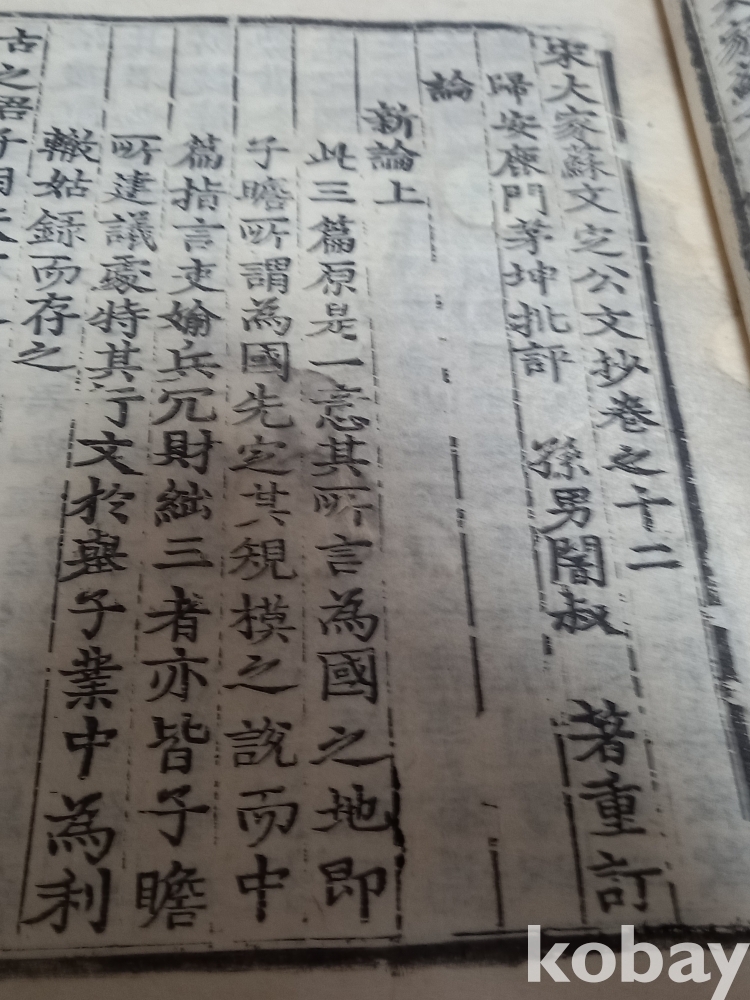 宋大家蘇文定公文抄卷之十二
歸安鹿門茅坤批評 孫男闇叔著重訂
論
新論上
此三篇原是一意其所言為國之地即
子瞻所謂為國先定其規模之說而中
篇指言吏媮兵冗財絀三者亦皆子瞻
所建議處特其行文於舉子業中為利
轍姑錄而存之
古之君子因天下
kobay